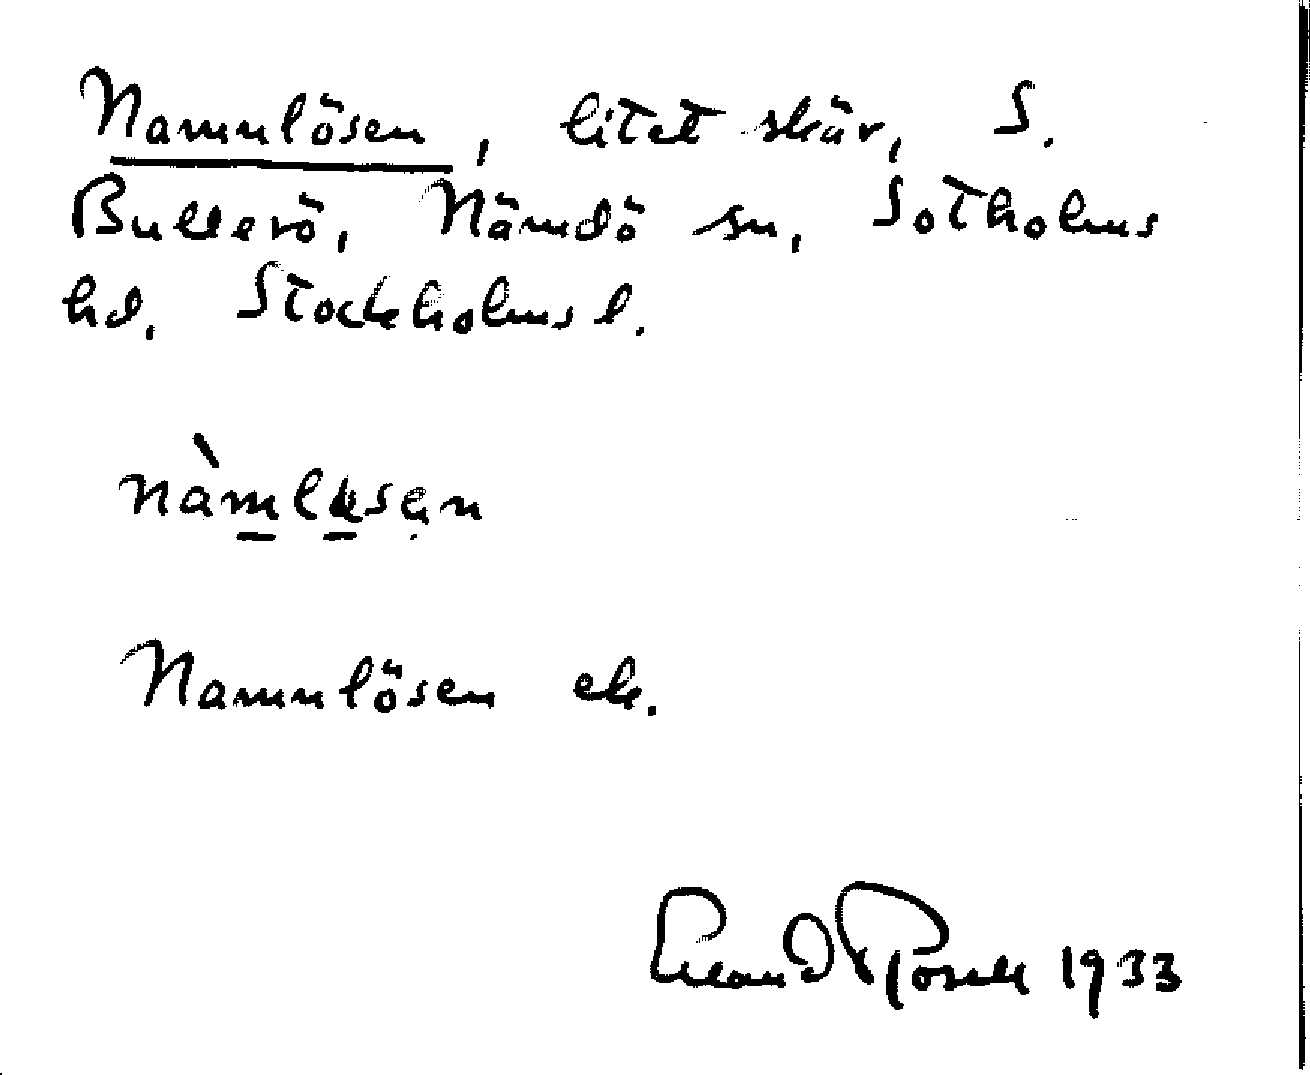 Namnlösen, litet skär, S.
Bullerö, Nämdö sn, Sotholms
hd. Stockholms l.
Namnlösen ek.
Erland Rosell 1933